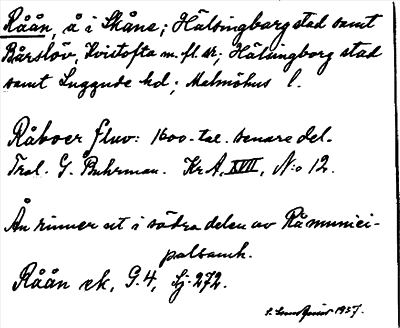 Råån, å i Skåne; Hälsingborg stad samt
Bårslöv, Kvistofta m. fl. sr; Hälsingborg stad
samt Luggude hd; Malmöhus l.
Råboer fluv: 1600-tal. senare del.
Tral. G. Buhrman. Kr A, XVII, N:o 12.
Ån rinner ut i södra delen av Rå munici-
palsamh.
Råån ek, G.4, Sj. 272.
1937.